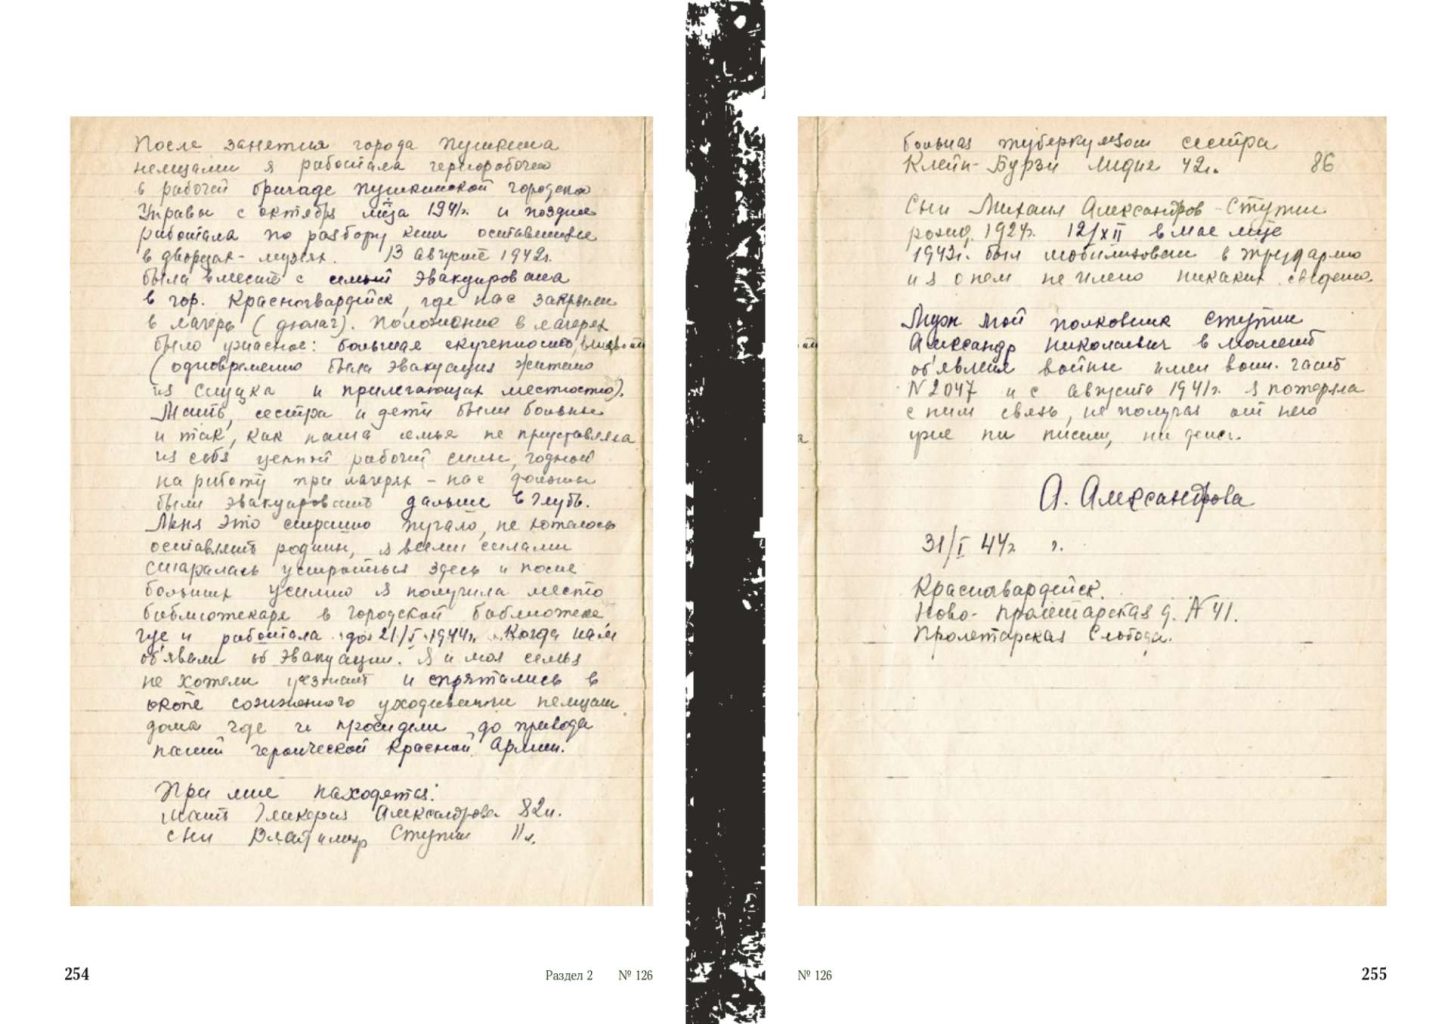 После занятия города Пушкина
немцами я работала чернорабочей
в рабочей бригаде Пушкинской городской
Управы с октября м-ца 1941г. и позднее
работала по разбору книг оставшихся
в дворцах-музеях. 13 августа 1942г.
была вместе с семьей эвакуирована
в гор. Красногвардейск, где нас закрыли
в лагерь (дюлаг). Положение в лагерях
было ужасное: большая скученность,
(одновременно была эвакуация жителей
из Слуцка и прилегающих местностей).
Мать, сестра и дети были больные
и так, как наша семья не представляла
из себя ценной рабочей силы, годной
на работу при лагерях - нас должны
были эвакуировать дальше в глубь.
Меня это страшно пугало, не хотелось
оставлять родины, я всеми силами
старалась устроиться здесь и после
больших усилий я получила место
библиотекаря в городской библиотеке
где и работала до 21/I 1944г. Когда нам
об'явили об эвакуации. Я и моя семья
не хотели уезжать и спрятались в
окопе сожженного уходившими немцами
дома где и просидели до прихода
нашей героической Красной Армии.
При мне находятся:
мать Гликерия Александрова 82л.
сын Владимир Ступин 11л.
254
Раздел 2 № 126
больная туберкулезом сестра
Клейн-Бурзи Лидия 42г. 86
Сын Михаил Александров-Ступин
рожд. 1924г. 12/XII в мае м-це
1943г. был мобилизован в трудармию
и я о нем не имею никаких сведений.
Муж мой полковник Ступин
Александр Николаевич в момент
об'явления войны имел воин. часть
N 2047 и с августа 1941г. я потеряла
с ним связь, не получая от него
уже ни писем, ни денег.
А. Александрова
31/I 44г.
Красногвардейск.
Ново-Пролетарская д. № 41.
Пролетарская Слобода.
№ 126
255